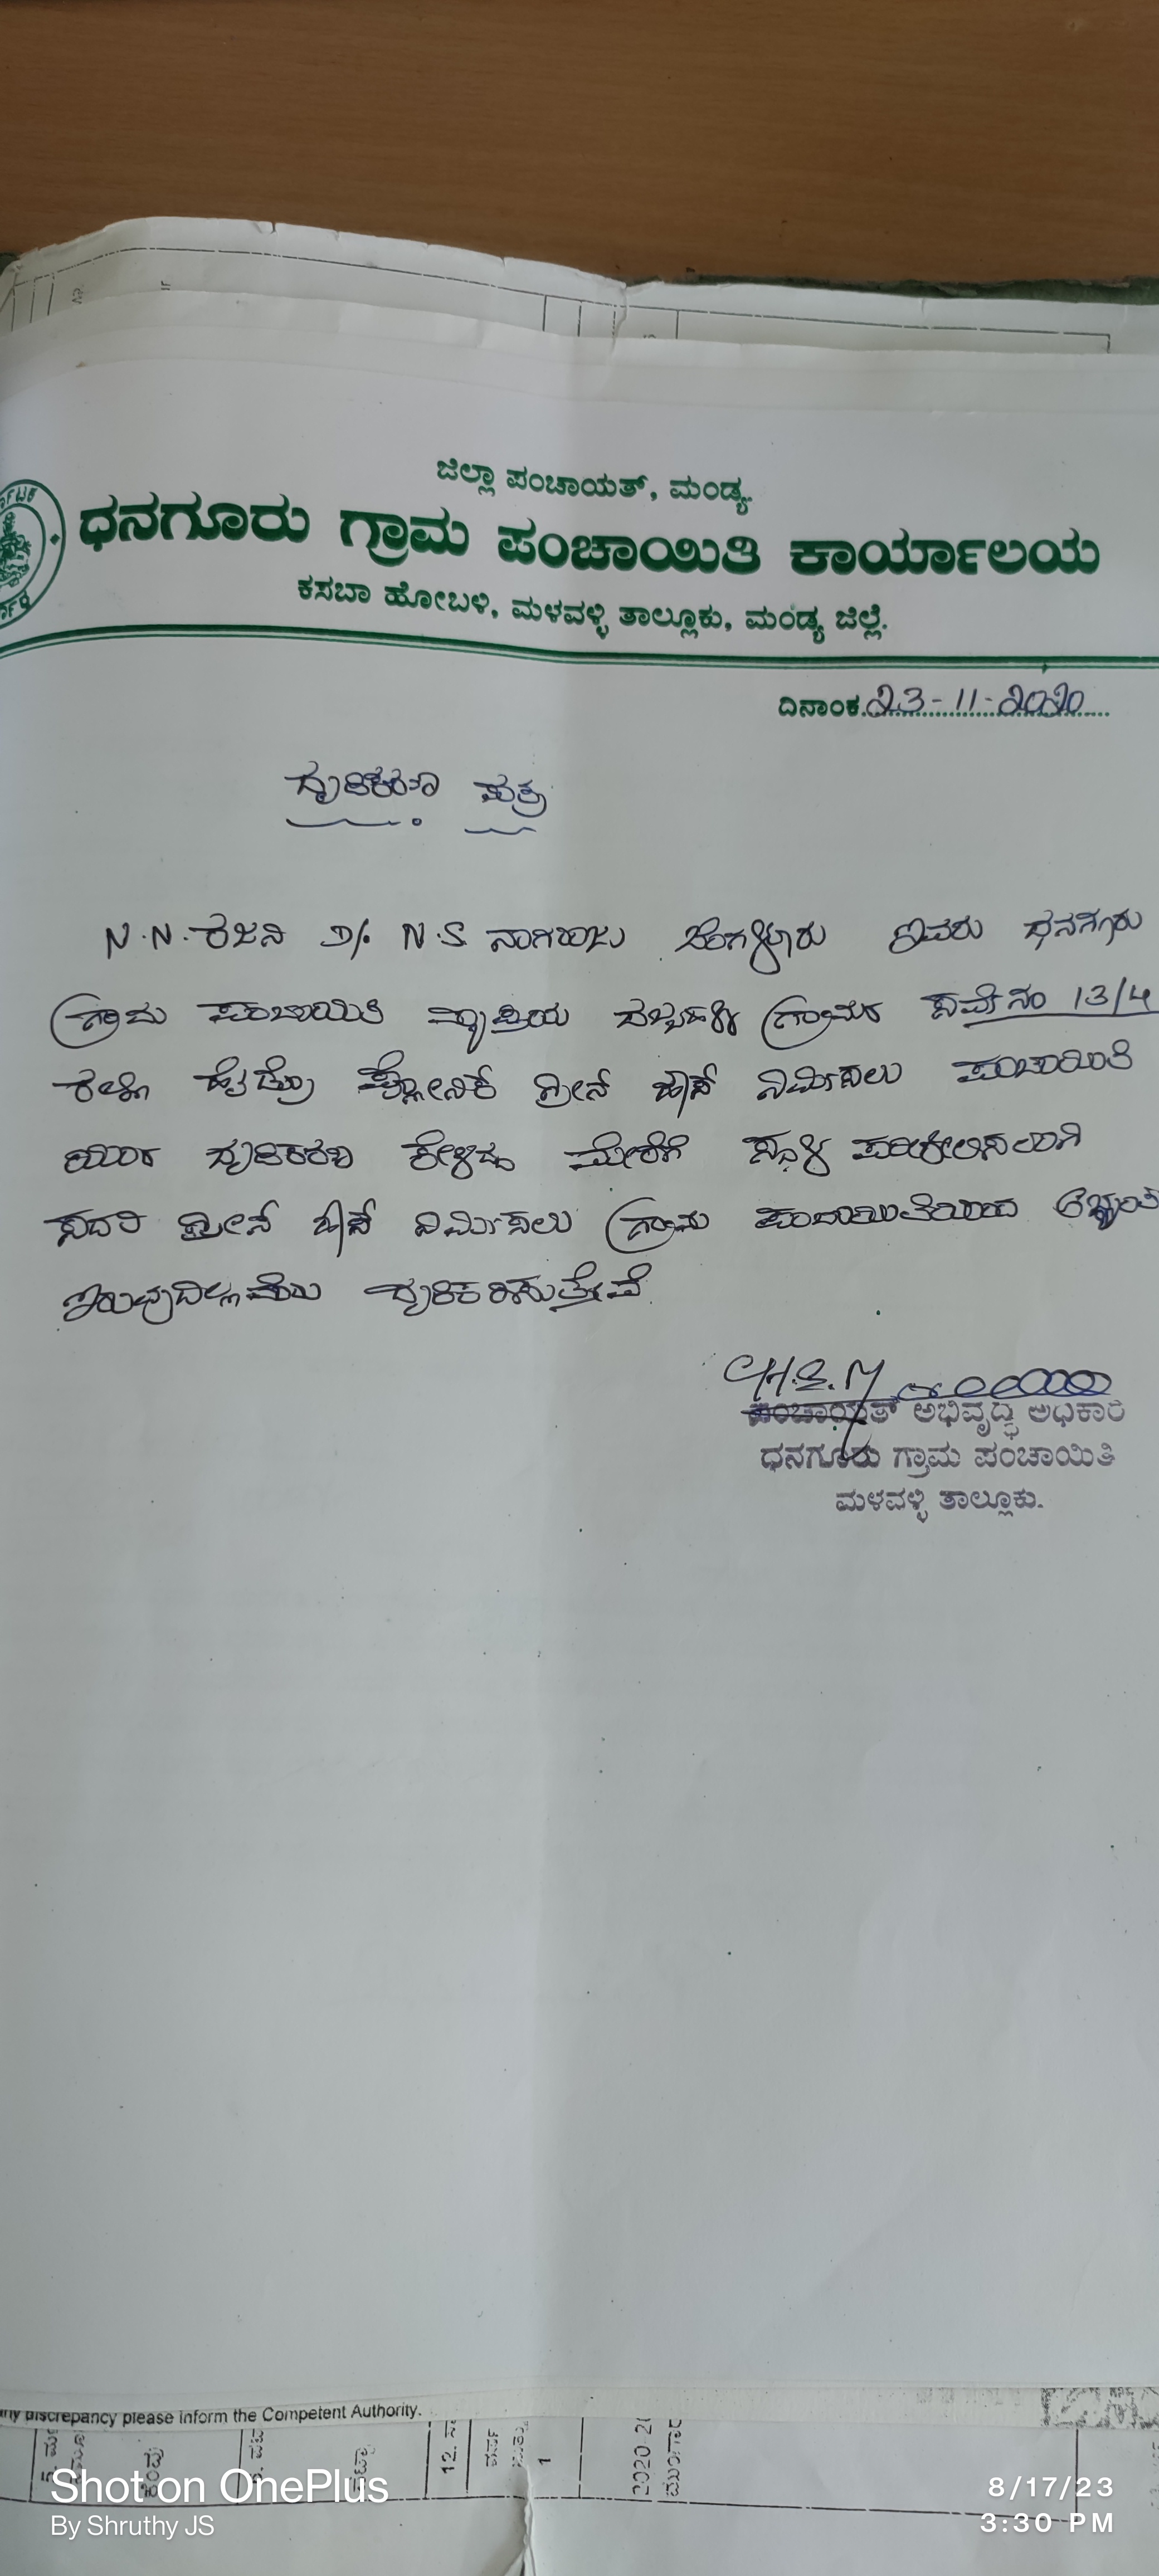 ಜಿಲ್ಲಾ ಪಂಚಾಯತ್, ಮಂಡ್ಯ.
ಧನಗೂರು ಗ್ರಾಮ ಪಂಚಾಯಿತಿ ಕಾರ್ಯಾಲಯ
ಕಸಬಾ ಹೋಬಳಿ, ಮಳವಳ್ಳಿ ತಾಲ್ಲೂಕು, ಮಂಡ್ಯ ಜಿಲ್ಲೆ.
ದಿನಾಂಕ 23-11-2020
ದೃಢಿಕರಣ ಪತ್ರ
N.N. ರಜನಿ D/o N.S ನಾಗರಾಜು ಇವರು ಧನಗೂರು
ಗ್ರಾಮ ಪಂಚಾಯಿತಿ ವ್ಯಾಪ್ತಿಯ ಗ್ರಾಮದ ಸರ್ವೆ ನಂ 13/4
ರಲ್ಲಿ ಹೈಡ್ರೊ ಪ್ಲೋನಿಕ್ ಗ್ರೀನ್ ಹೌಸ್ ನಿರ್ಮಿಸಲು ಪಂಚಾಯಿತಿ
ಯಿಂದ ದೃಢಿಕರಣ ಕೇಳಿದ್ದು ಮೇರೆಗೆ ಸ್ಥಳ ಪರಿಶೀಲಿಸಲಾಗಿ
ಸದರಿ ಗ್ರೀನ್ ಹೌಸ್ ನಿರ್ಮಿಸಲು ಗ್ರಾಮ ಪಂಚಾಯಿತಿಯಿಂದ
ಇರುವುದಿಲ್ಲವೆಂದು ದೃಢಿಕರಿಸುತ್ತೇವೆ.
ಪಂಚಾಯತ್ ಅಭಿವೃದ್ಧಿ ಅಧಿಕಾರಿ
ಧನಗೂರು ಗ್ರಾಮ ಪಂಚಾಯಿತಿ
ಮಳವಳ್ಳಿ ತಾಲ್ಲೂಕು.
discrepancy please inform the Competent Authority.
Shot on OnePlus
By Shruthy JS
8/17/23
3:30 PM